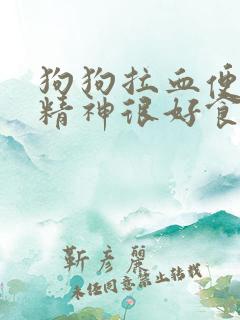 狗狗拉血便
精神很好食
靳彦麗
未经同意禁止转载